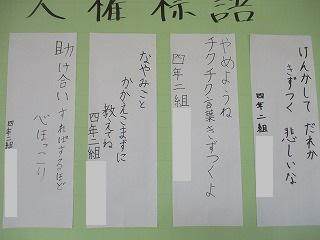 人権標語
けんかして だれか
きずつく 悲しいな
四年二組
やめようね
チクチク言葉きずつくよ
四年二組
なやみごと
かかえこまずに
教えてね
四年二組
助け合い すればするほど
心ほっこり
四年二組